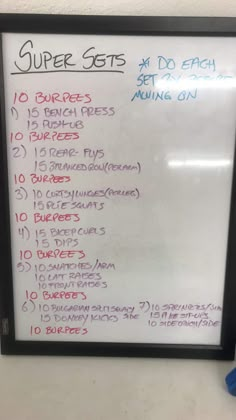 SUPER SETS
* DO EACH
SET
MOVING ON
10 BURPEES
1) 15 BENCH PRESS
15 PUSH-UP
10 BURPEES
2) 15 REAR-FLYS
15 BALANCED ROW (PER ARM)
10 BURPEES
3) 10 CURTSY LUNGES
15 PLIE SQUATS
10 BURPEES
4) 15 BICEP CURLS
15 DIPS
10 BURPEES
5) 10 SNATCHES/ARM
10 LAT RAISES
10 FRONT RAISES
10 BURPEES
6) 10 BULGARIAN SPLIT SQUAT
15 DONKEY KICKS SIDE
10 BURPEES
7) 10
15
10 SIDE CRUNCH/SIDE